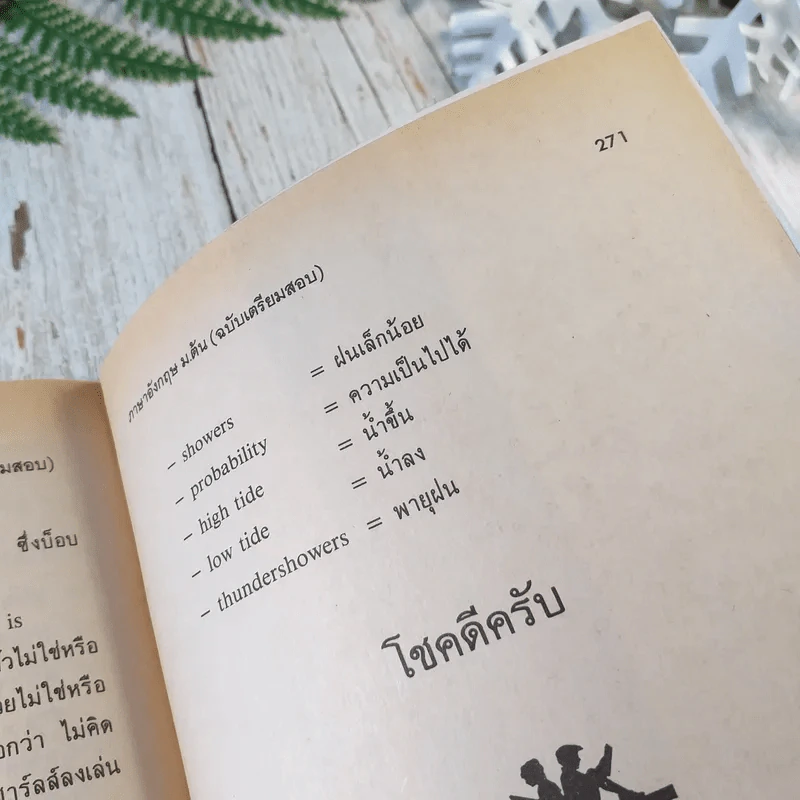 มสอบ)
ซึ่งบ็อบ
is
ไม่ใช่หรือ
ไม่ใช่หรือ
ไม่คิด
ลงเล่น
271
ภาษาอังกฤษ ม.ต้น (ฉบับเตรียมสอบ)
– showers = ฝนเล็กน้อย
– probability = ความเป็นไปได้
– high tide = น้ำขึ้น
– low tide = น้ำลง
– thundershowers = พายุฝน
โชคดีครับ